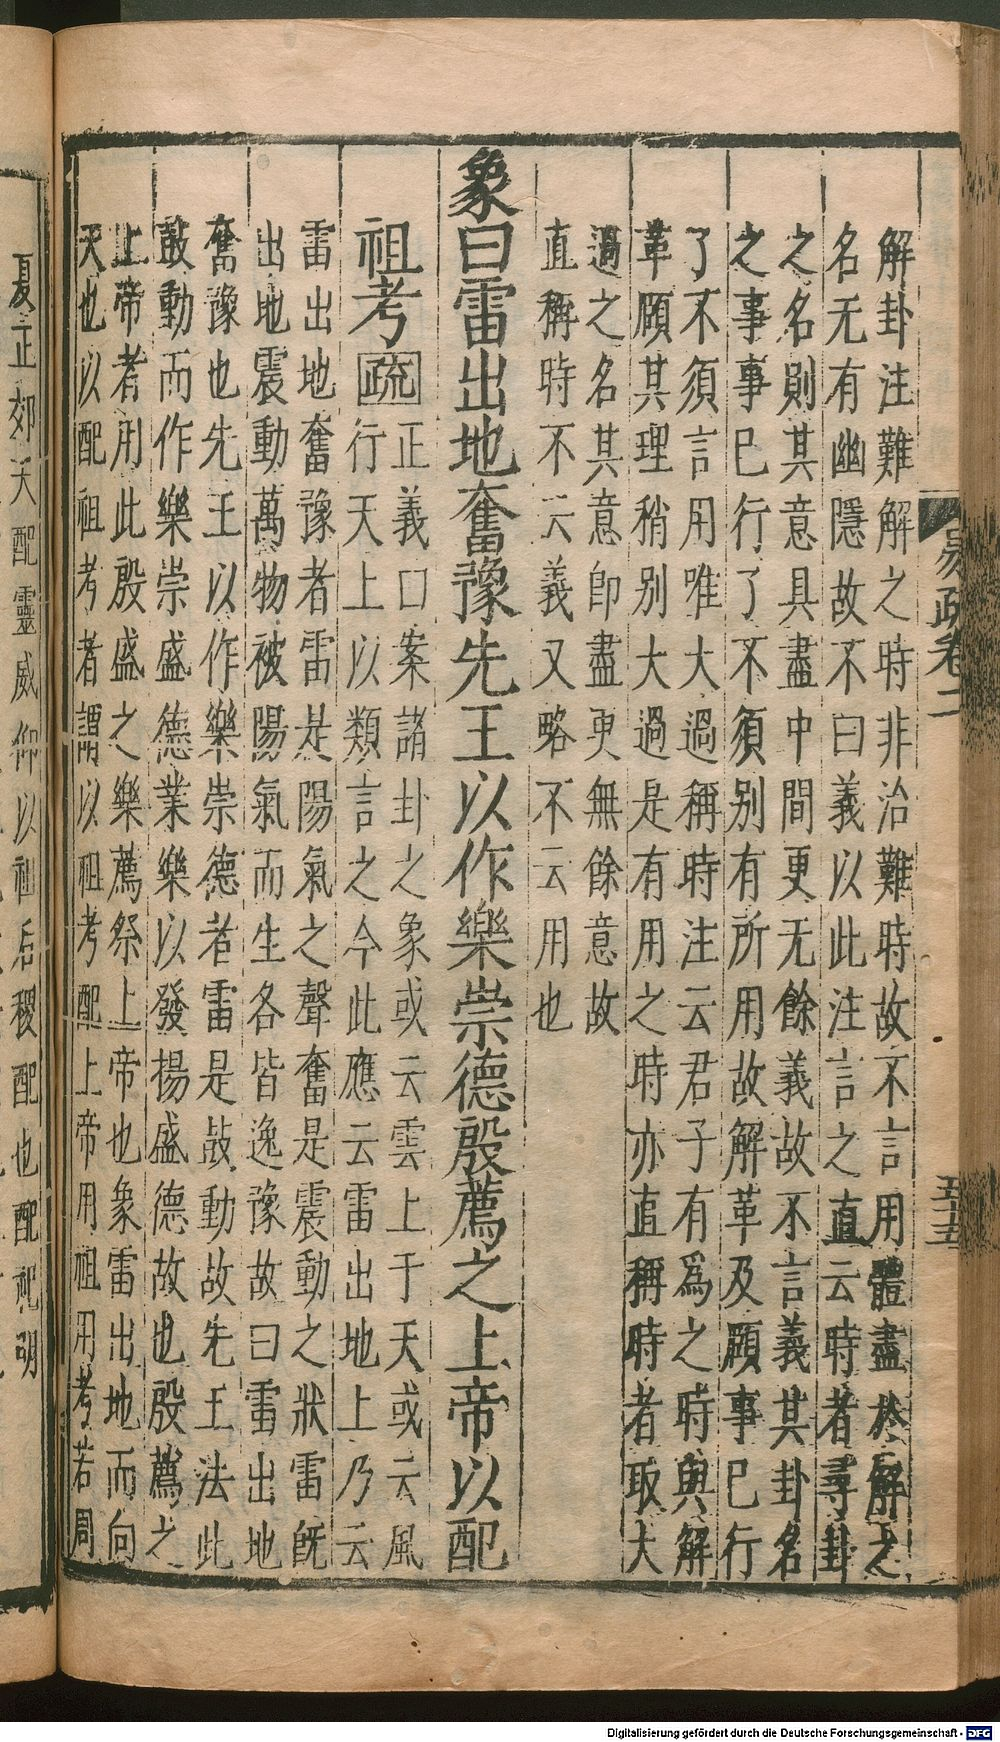 解卦注難解之時非治難時故不言用體盡於解之
名无有幽隱故不曰義以此注言之直云時者尋卦
之名則其意具盡中間更无餘義故不言義其卦名
之事事已行了不須別有所用故解革及頤事已行
了不須言用唯大過稱時注云君子有爲之時與解
革頤其理稍別大過是有用之時亦直稱時者取大
過之名其意即盡更無餘意故
直稱時不云義又略不云用也
象曰雷出地奮豫先王以作樂崇德殷薦之上帝以配
祖考
疏
正義口案諸卦之象或云雲上于天或云風
行天上以類言之今此應云雷出地上乃云
雷出地奮豫者雷是陽氣之聲奮是震動之狀雷旣
出地震動萬物被陽氣而生各皆逸豫故曰雷出地
奮豫也先王以作樂崇德者雷是鼓動故先王法此
鼓動而作樂崇盛德業樂以發揚盛德故也殷薦之
上帝者用此殷盛之樂薦祭上帝也象雷出地而向
天也以配祖考者謂以祖考配上帝用祖用考若周
夏正郊天配靈威仰以祖后稷配也配祀明
易疏卷二
五十五
Digitalisierung gefördert durch die Deutsche Forschungsgemeinschaft - DFG